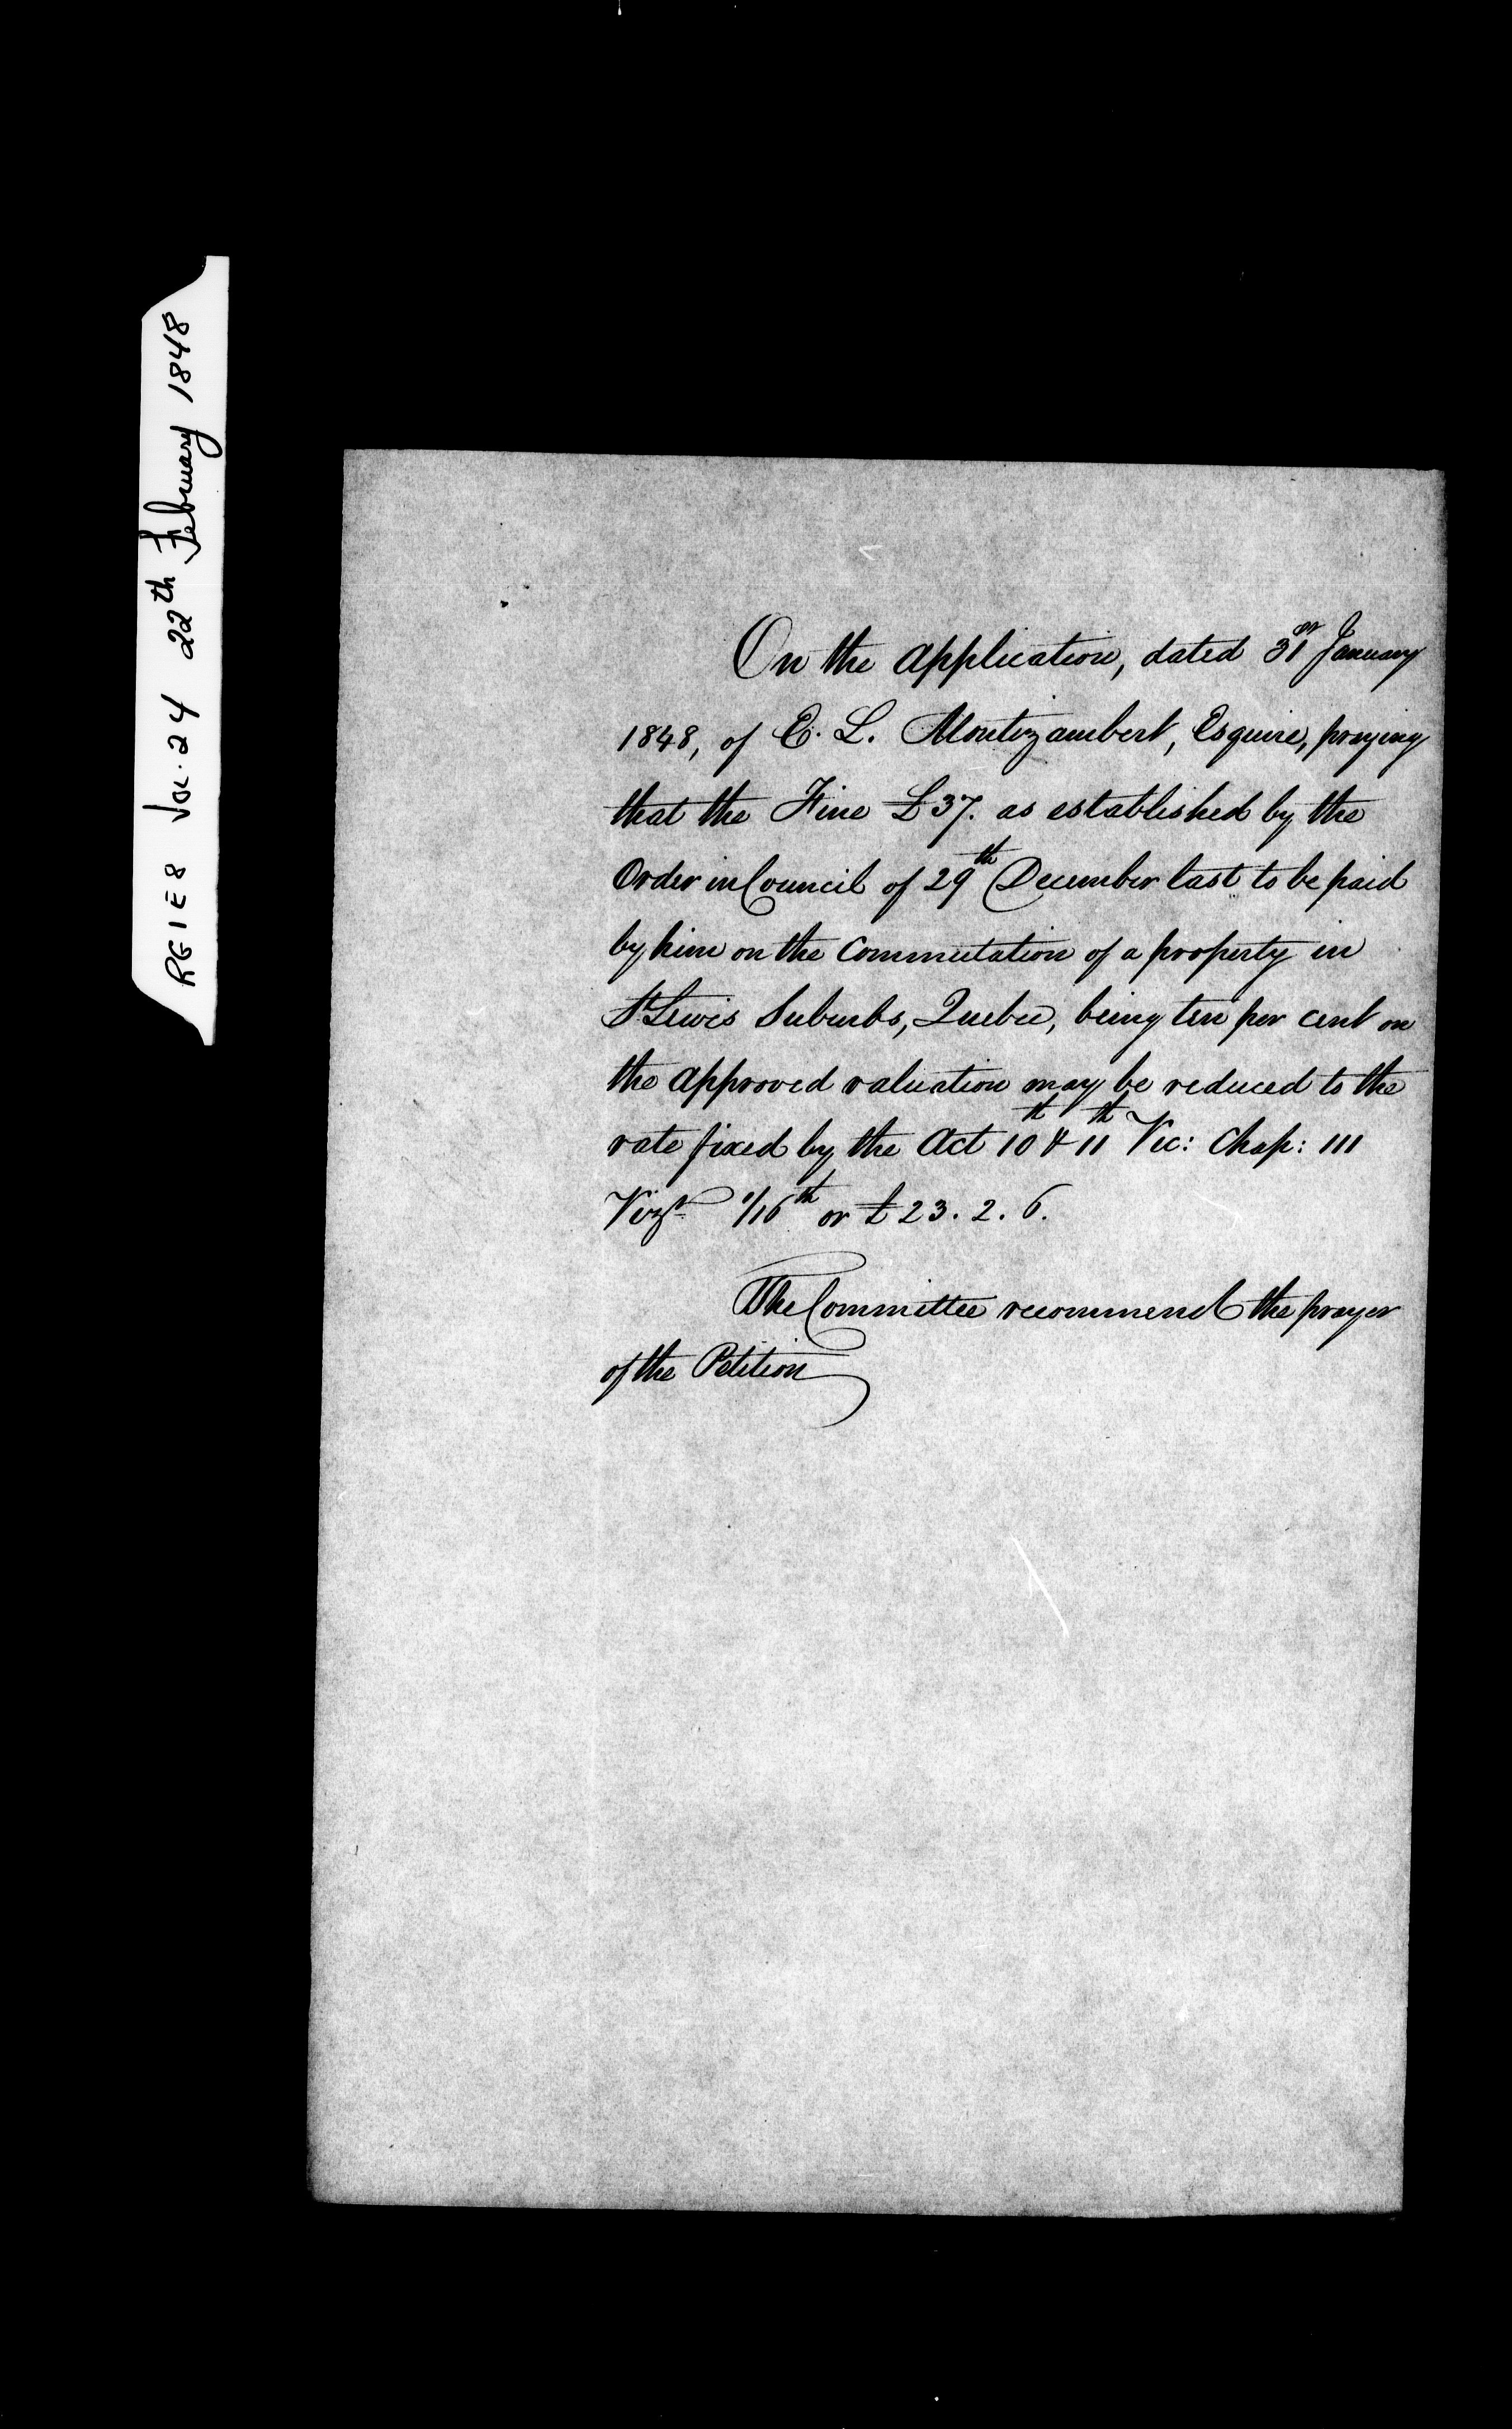 RG 1 E 8 Vol. 24 22th February 1848
On the application, dated 31st January
1848, of E. L. Montizambert, Esquire, praying
that the Fine £37. as established by the
Order in Council of 29th December last to be paid
by him on the Commutation of a property in
St Lewis Suburbs, Quebec, being ten per cent on
the approved valuation may be reduced to the
rate fixed by the Act 10th & 11th Vic: Chap: 111
Vizt 1/16th or £23. 2. 6.
The Committee recommend the prayer
of the Petition